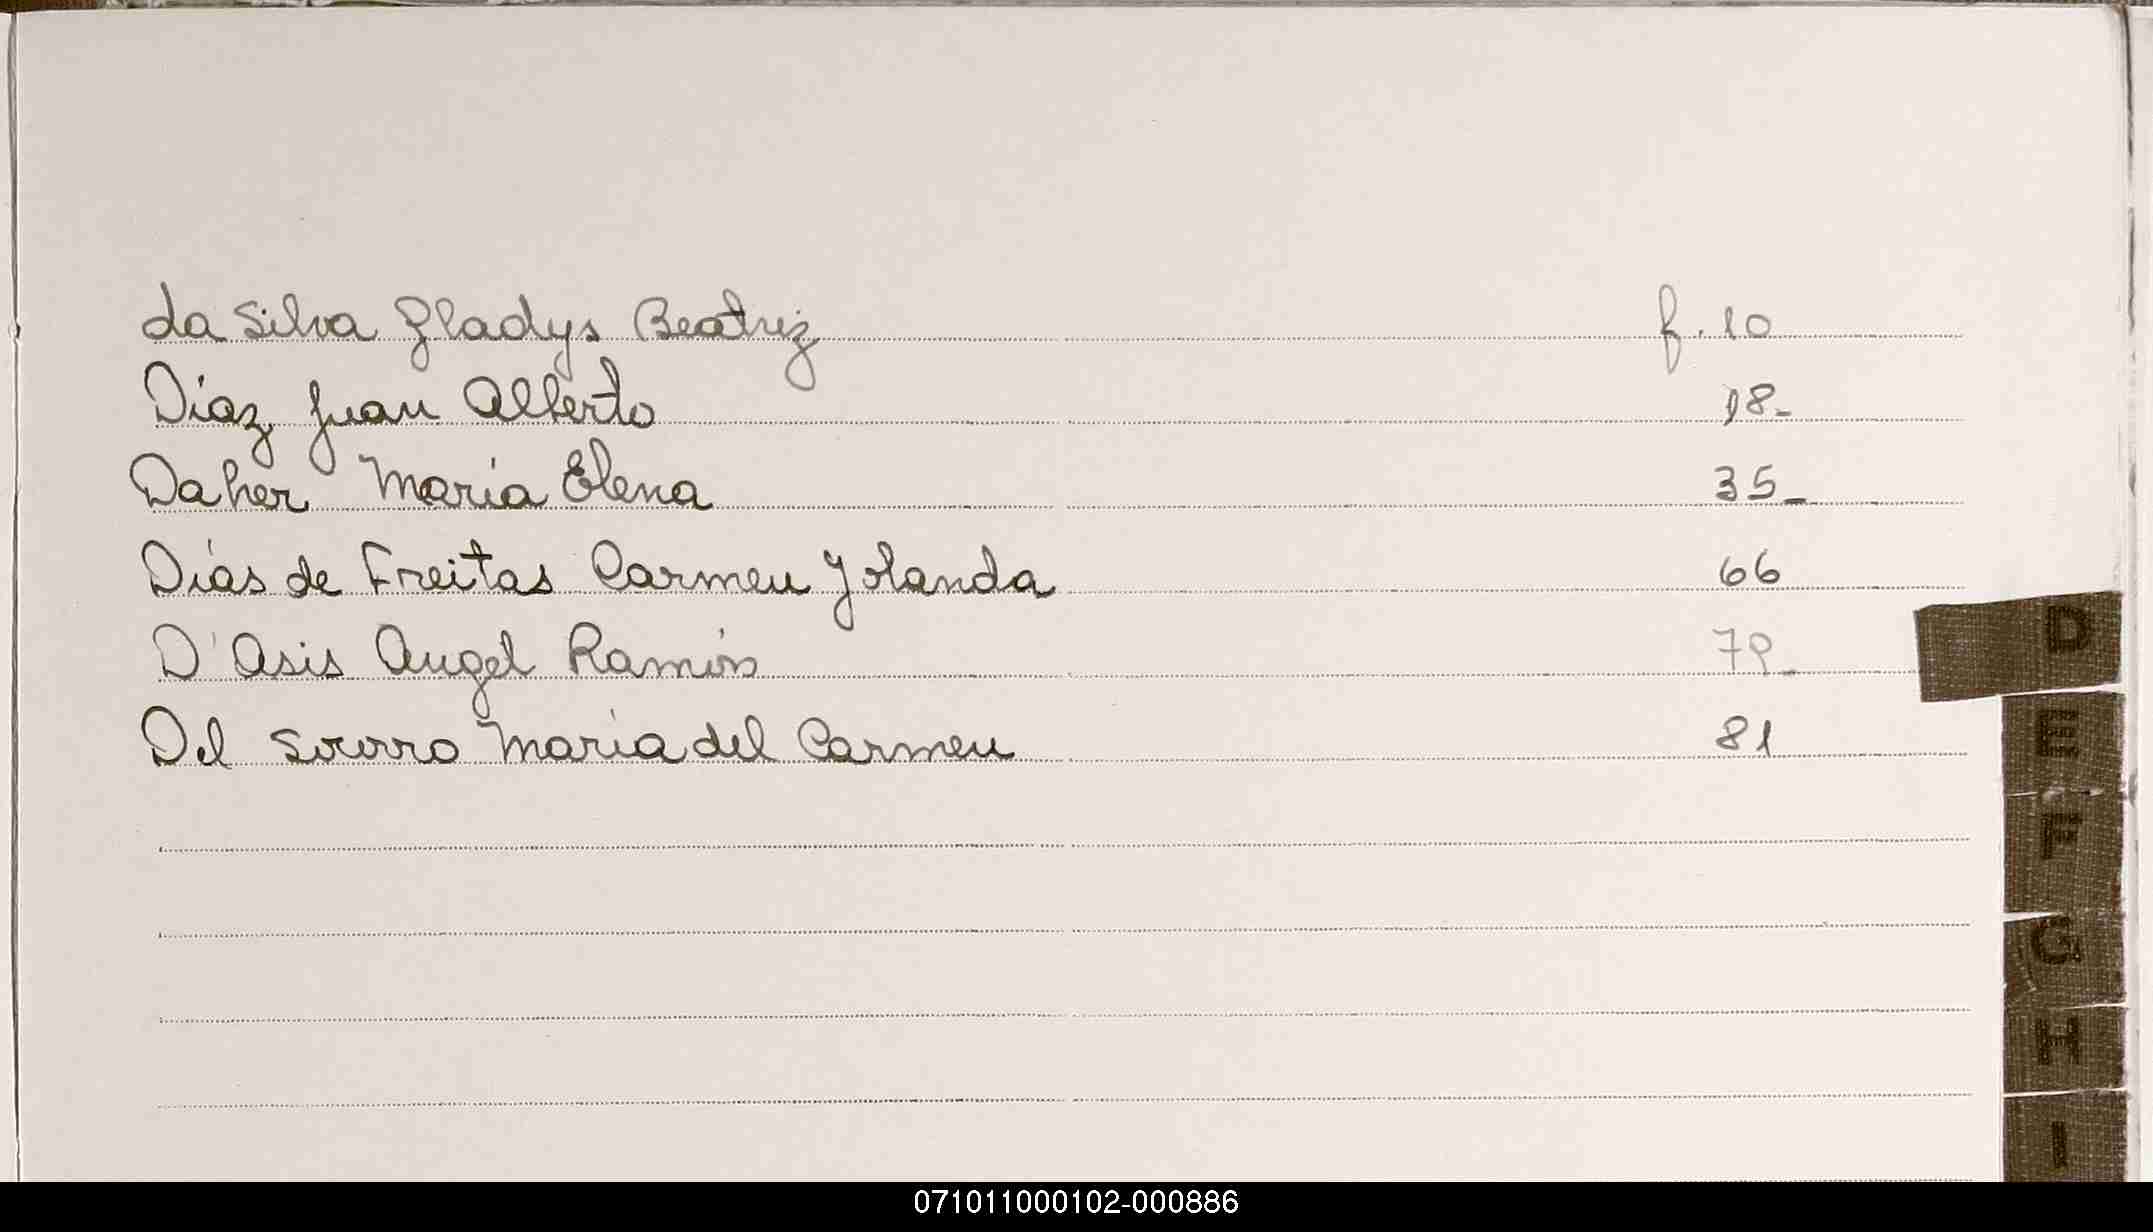 da Silva Gladys Beatriz f. 10
Díaz, Juan Alberto 18-
Daher María Elena 35-
Días de Freitas Carmen Yolanda 66
D'Asis Angel Ramón 79-
Del Socorro María del Carmen 81
D
E
F
G
H
I
071011000102-000886